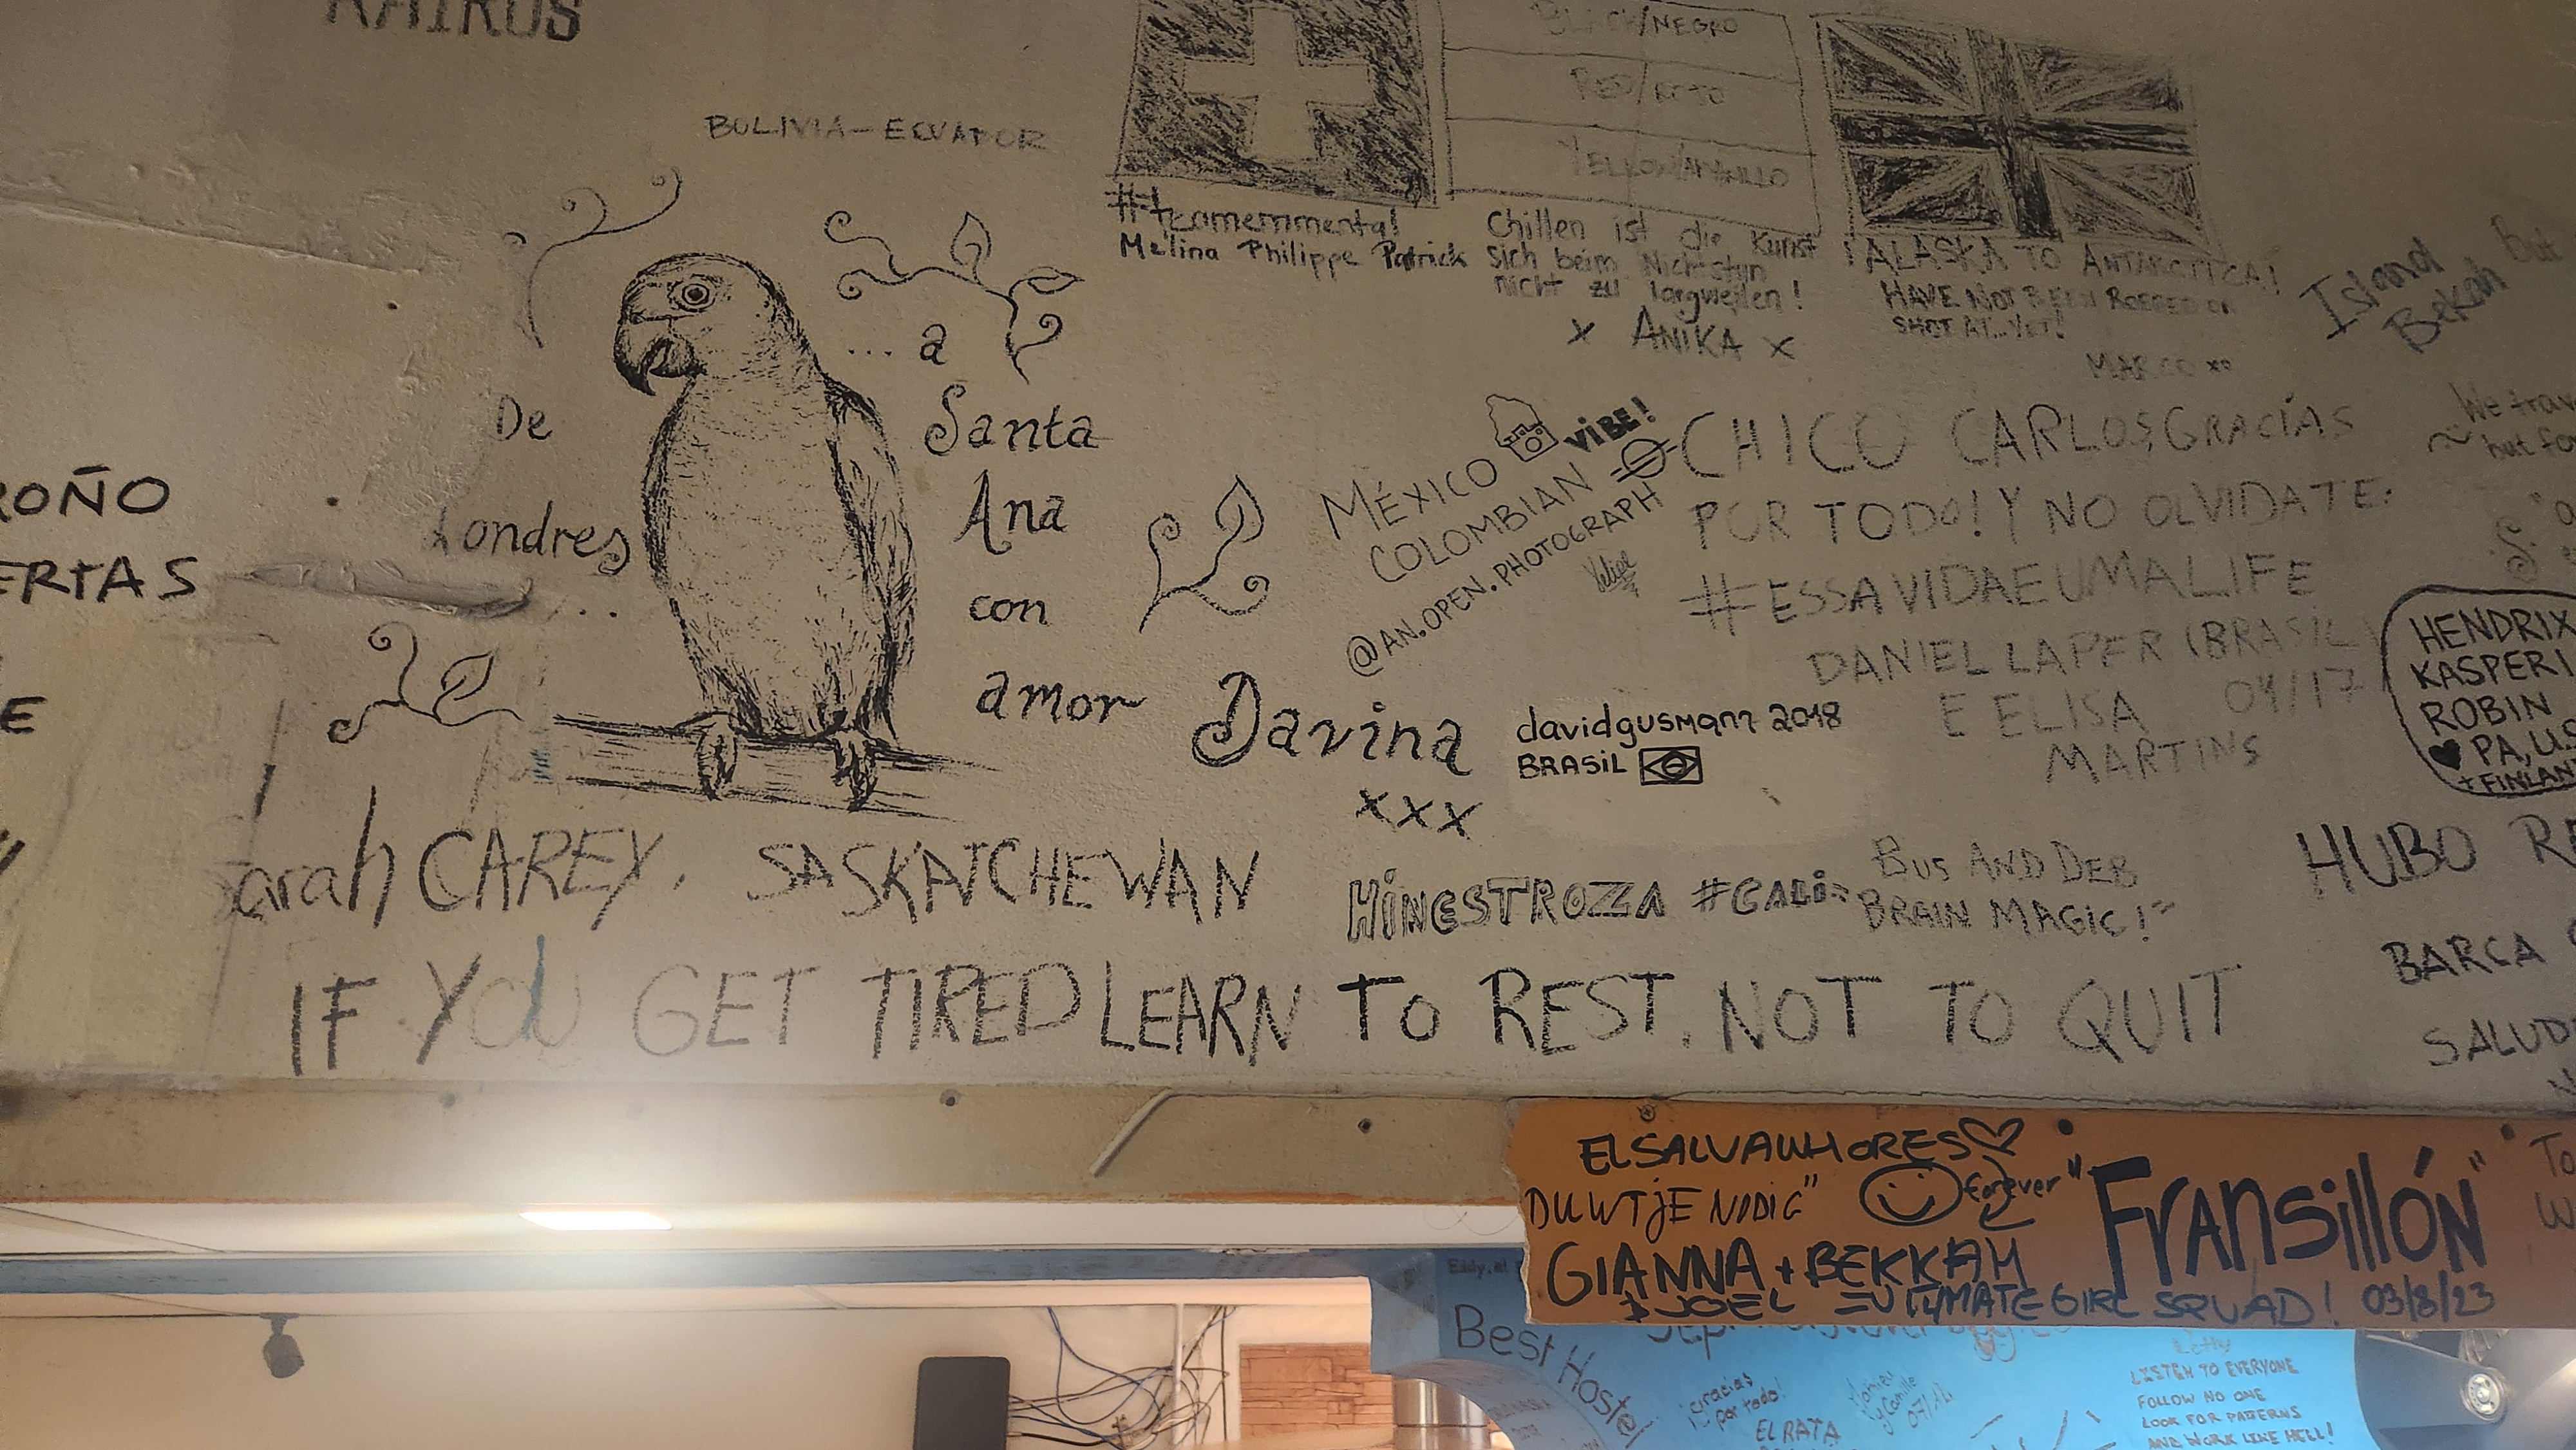 KAIROS
BOLIVIA-ECUADOR
BLACK/NEGRO
RED/ROJO
YELLOW/AMARILLO
Melina Philippe Patrick
Chillen ist die Kunst
sich beim Nichstun
nicht zu langweilen!
x ANIKA x
ALASKA TO ANTARCTICA!
HAVE NOT BEEN ROBBED OR
SHOT AT...YET!
MARCO xo
Island but
Bekah
We trav
but fo
De
Londres
...
... a
Santa
Ana
con
amor
Davina
xxx
ROÑO
ERTAS
E
MÉXICO
VIBE!
COLOMBIAN
@AN.OPEN.PHOTOGRAPH
CHICO CARLOS, GRACÍAS
POR TODO! Y NO OLVIDATE:
#ESSAVIDAEUMALIFE
DANIEL LAPER (BRASIL)
E ELISA 04/17
MARTINS
davidgusmann 2018
BRASIL
HENDRIX
KASPERI
ROBIN
PA, U.S
+FINLAN
Sarah CAREY, SASKATCHEWAN
HINESTROZZA #CALI
BUS AND DEB
BRAIN MAGIC!
HUBO
BARCA
SALUD
IF YOU GET TIRED LEARN TO REST. NOT TO QUIT
ELSALVAWHORES
DUWTJE NODIG"
forever
"FRANSillÓN"
GIANNA + BEKKAH
& JOEL = ULTIMATE GIRL SQUAD! 03/8/23
Best Hoste
¡gracias
por todo!
EL RATA
07/12
LISTEN TO EVERYONE
FOLLOW NO ONE
LOOK FOR PATTERNS
AND WORK LIKE HELL!